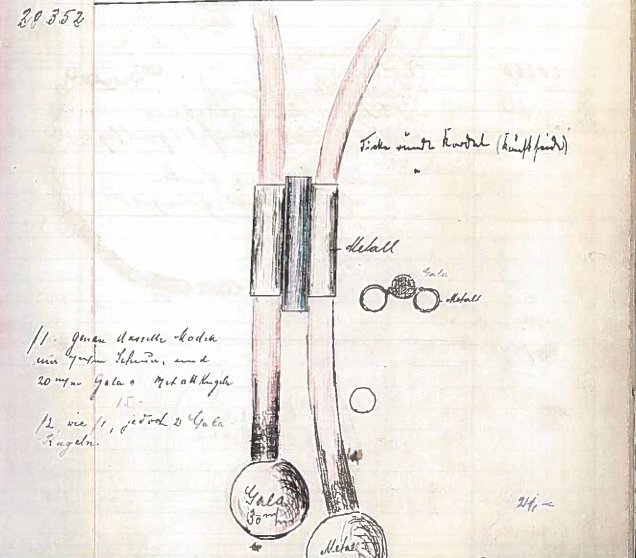 20352
runde Kordel (Kunstseide)
Metall
Gala
Metall
/1. genau dasselbe Modell
nur Schnur, und
20 m/m Gala u Metallkugel
15.-
/2, wie /1, jedoch 2 Gala
Kugeln.
Gala
30 m/m
Metall
21,-